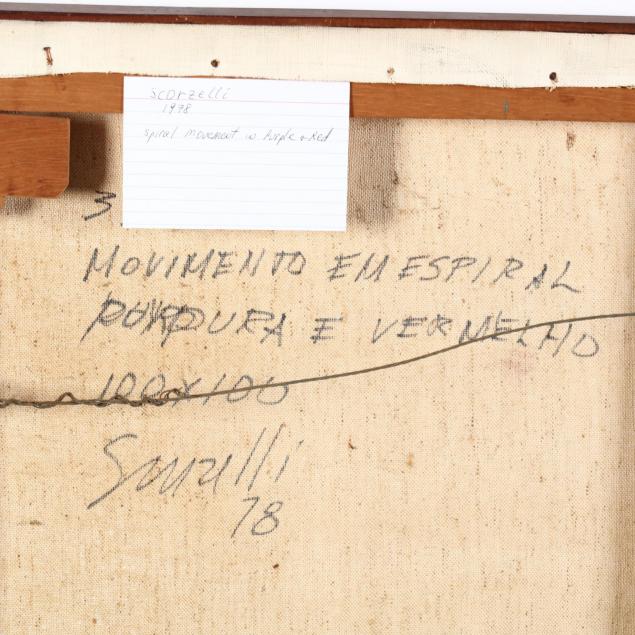 Scorzelli
1978
Spiral Movement in Purple & Red
3
MOVIMENTO EM ESPIRAL
PURPURA E VERMELHO
100X100
Scorzelli
78